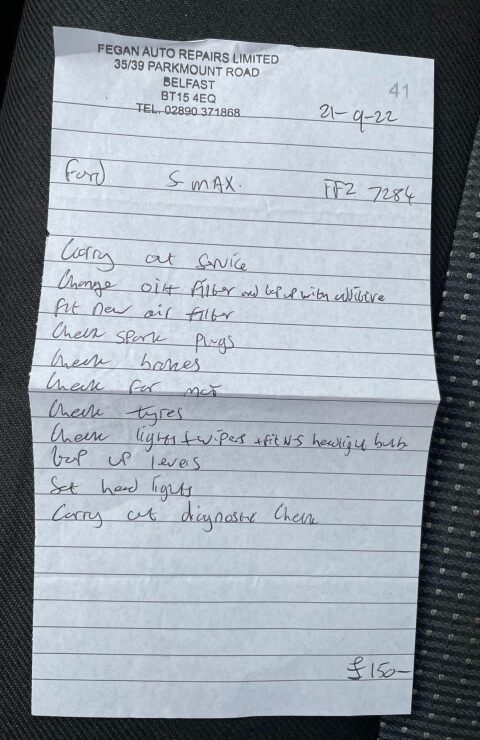 FEGAN AUTO REPAIRS LIMITED
35/39 PARKMOUNT ROAD
BELFAST
BT15 4EQ
TEL. 02890 371868
41
21-9-22
Ford S MAX. FFZ 7284
Carry out service
Change oil + filter and top up with additive
fit new air filter
Check spark plugs
Check brakes
Check for mot
Check tyres
Check lights + wipers + fit N-S headlight bulb
top up levels
Set head lights
Carry out diagnostic Check
£150-